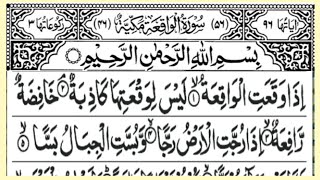 اٰیَاتُهَا ٩٦ (٥٦) سُوْرَةُ الْوَاقِعَةِ مَكِّیَّةٌ (٤٦) رُكُوْعَاتُهَا ٣
بِسْمِ اللّٰهِ الرَّحْمٰنِ الرَّحِیْمِ
اِذَا وَقَعَتِ الْوَاقِعَةُ ۙ١ لَیْسَ لِوَقْعَتِهَا كَاذِبَةٌ ۘ٢ خَافِضَةٌ
رَّافِعَةٌ ۙ٣ اِذَا رُجَّتِ الْاَرْضُ رَجًّا ۙ٤ وَّبُسَّتِ الْجِبَالُ بَسًّا ۙ٥